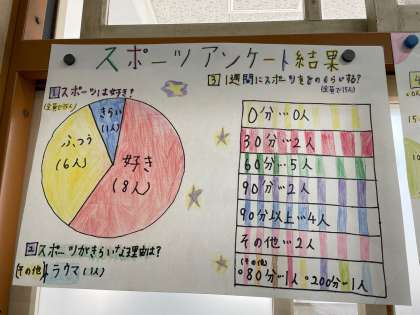 スポーツアンケート結果
1 スポーツは好き?
(全員で15人)
きらい
(1人)
ふつう
(6人)
好き
(8人)
2 スポーツがきらいな理由は?
(その他)トラウマ(1人)
3 1週間にスポーツをどのくらいする?
(全員で15人)
0分…0人
30分…2人
60分…5人
90分…2人
90分以上…4人
その他…2人
(その他)
・80分…1人 ・200分…1人